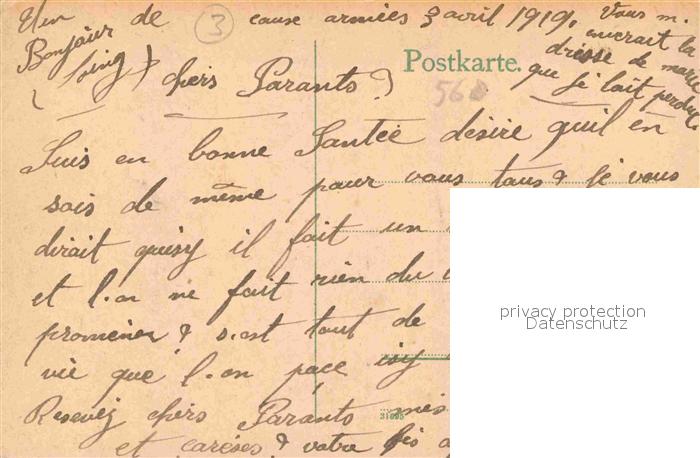 de (3) cause armées 3 avril 1919. Vous m.
Bonjour
Loing
auerait la
dresse de
que je lait perdu
Postkarte.
560
chers Parants
Suis en bonne Santée désire quil en
sois de même pour vous tous & je vous
dirait quisy il fait un
et l.on ne fait rien du
promener & s.est tout de
vie que l.on pace isy
Resevez chers Parants mes
et careses & votre fis
31695
privacy protection
Datenschutz